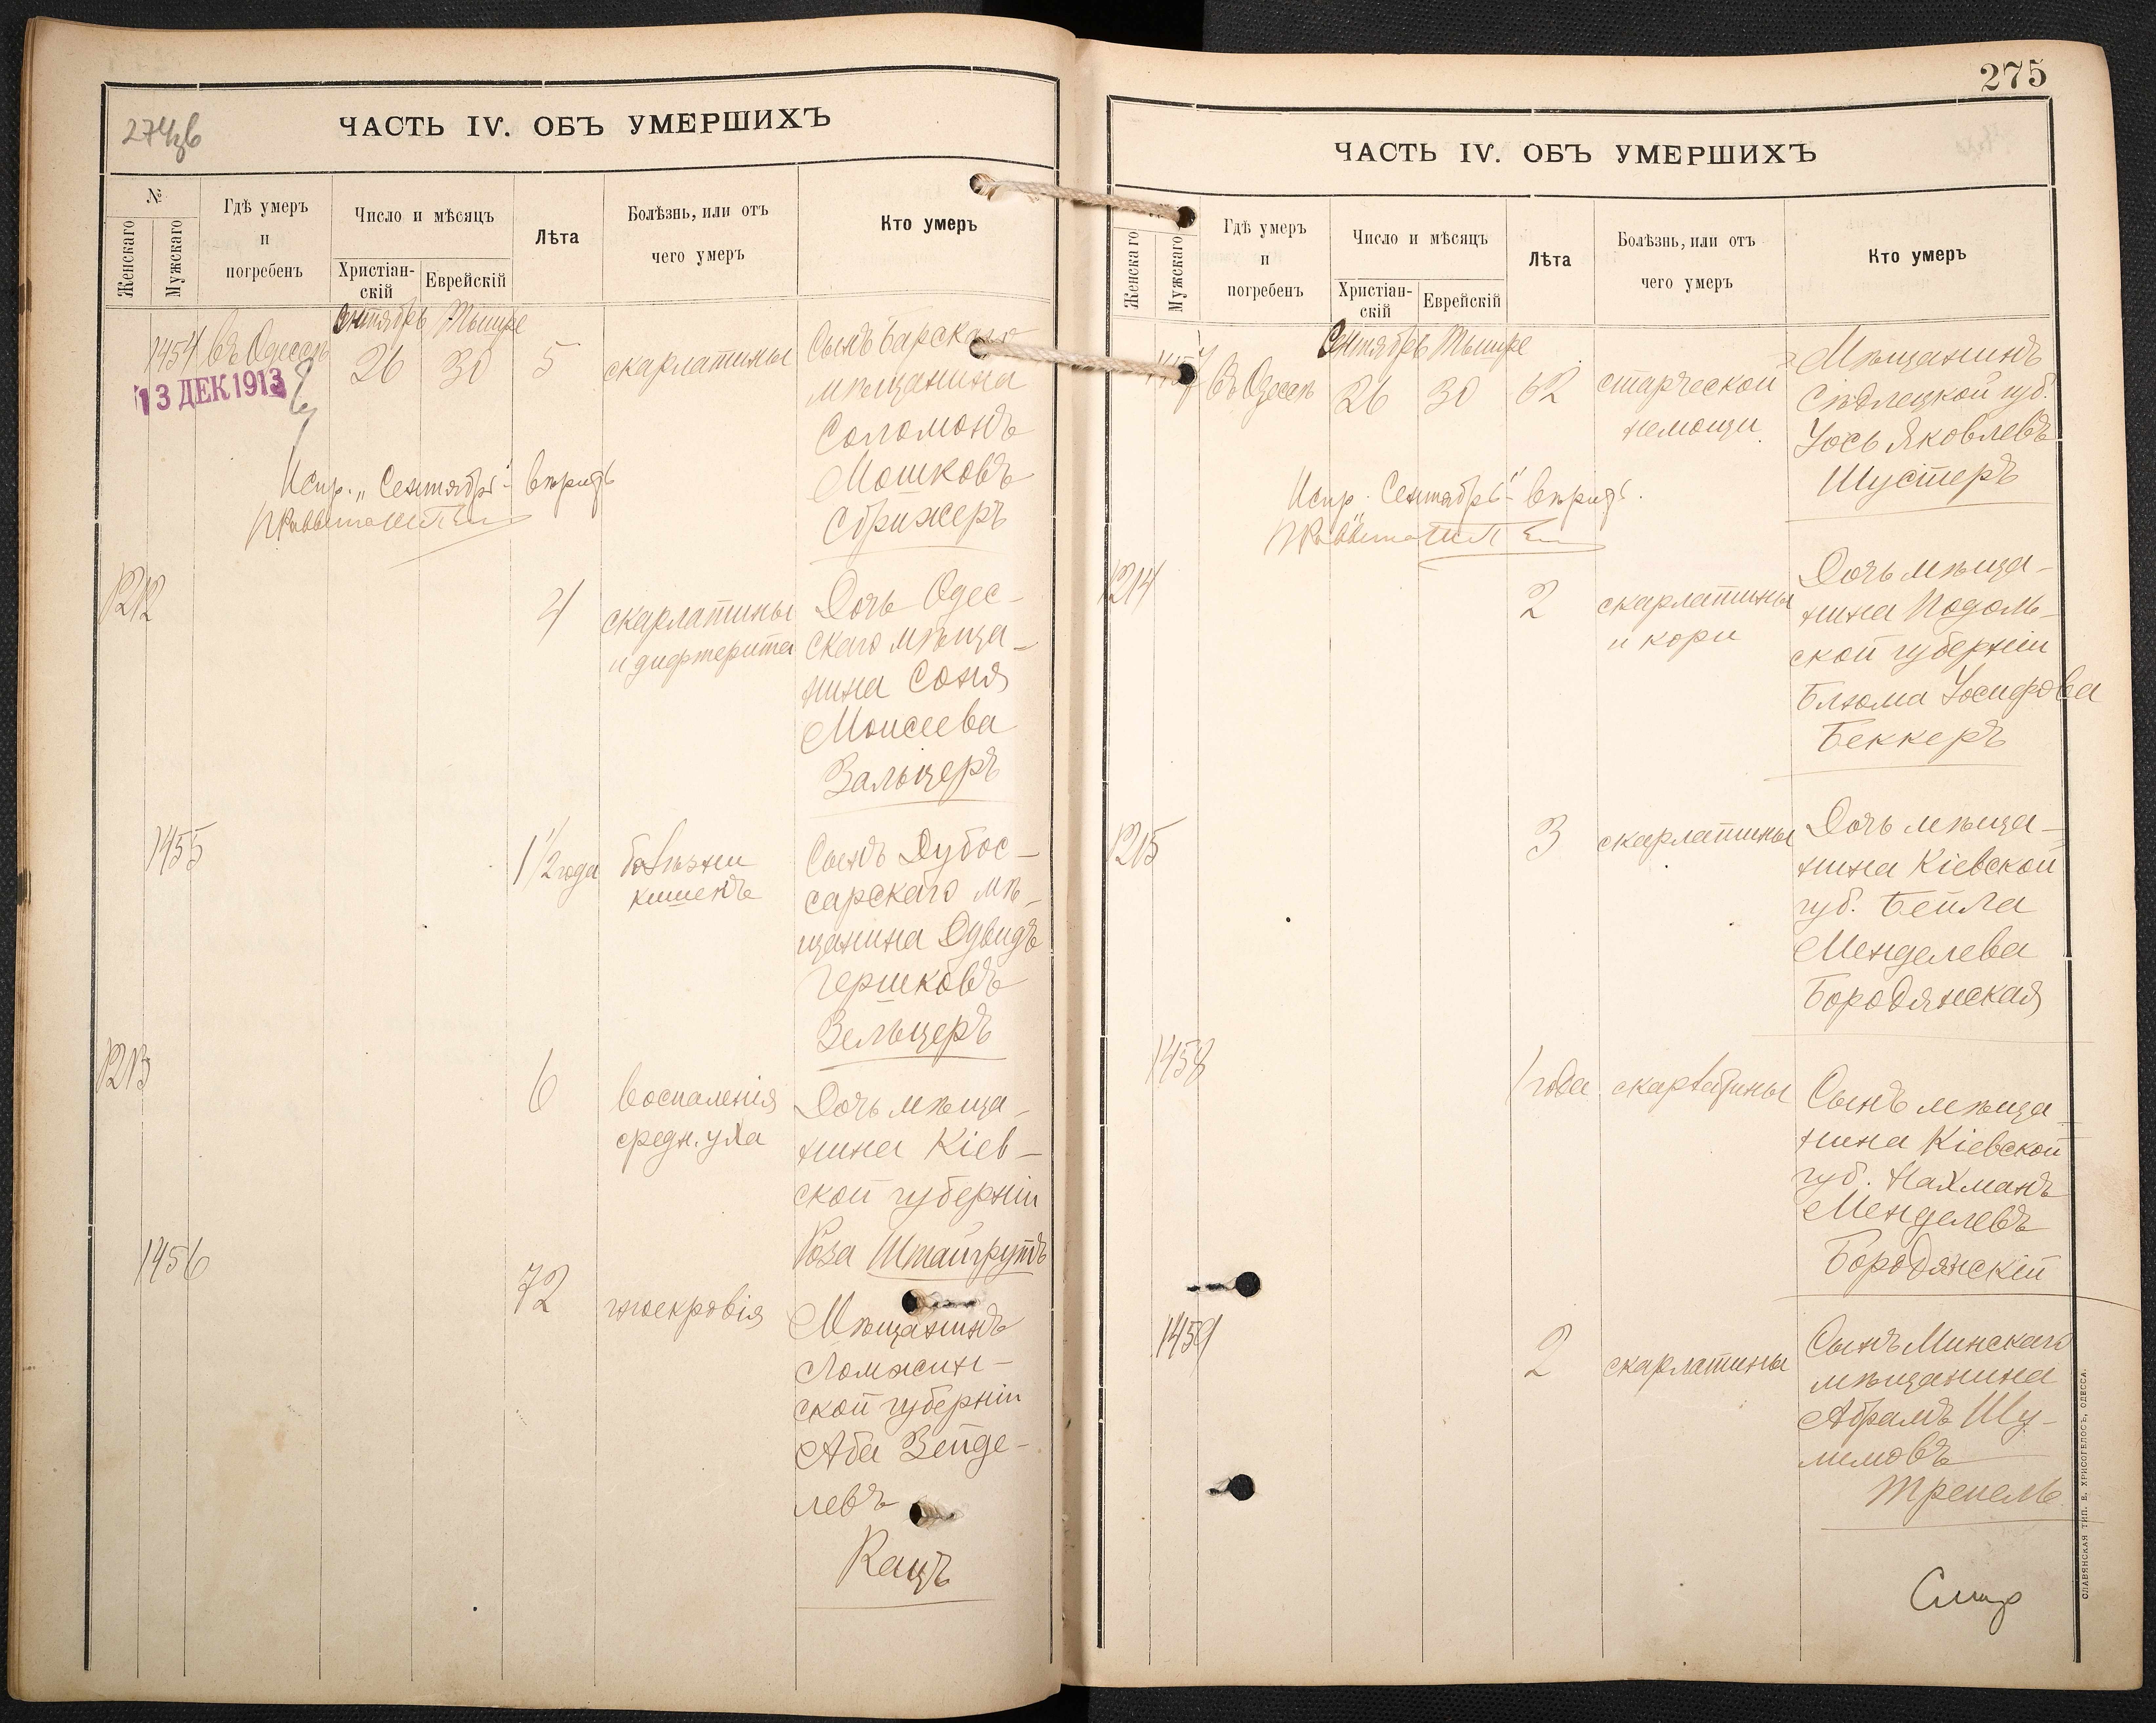 274зв
ЧАСТЬ IV. ОБЪ УМЕРШИХЪ
№
Женскаго
Мужскаго
Гдѣ умеръ
и
погребенъ
Число и мѣсяцъ
Христіан-
скій
Еврейскій
Лѣта
Болѣзнь, или отъ
чего умеръ
Кто умеръ
Сентябрь Тышре
1454 въ Одессѣ 26 30 5 скарлатины
Сынъ Барскаго
мѣщанина
Соломонъ
Мошковъ
Стрижеръ
13 ДЕК 1913
Испр. „Сентябрь" вѣрно
1212 4 скарлатины
и дифтерита
Дочь Одес-
скаго мѣща-
нина Соня
Моисеева
Зальцеръ
1455 1 1/2 года болѣзни
кишекъ
Сынъ Дубос-
сарскаго мѣ-
щанина Дувидъ
Гершковъ
Зельцеръ
1213 6 воспаленія
средн. уха
Дочь мѣща-
нина Кіев-
ской губерніи
Роза Штайгрутъ
1456 72 гноекровія
Мѣщанинъ
Ломжин-
ской губерніи
Аба Зейде-
левъ
Кацъ
275
ЧАСТЬ IV. ОБЪ УМЕРШИХЪ
Женскаго
Мужскаго
Гдѣ умеръ
и
погребенъ
Число и мѣсяцъ
Христіан-
скій
Еврейскій
Лѣта
Болѣзнь, или отъ
чего умеръ
Кто умеръ
Сентябрь Тышре
1457 въ Одессѣ 26 30 62 старческой
немощи
Мѣщанинъ
Сѣдлецкой губ.
Іось Яковлевъ
Шустеръ
Испр. „Сентябрь" вѣрно
1214 2 скарлатины
и кори
Дочь мѣща-
нина Подоль-
ской губерніи
Блюма Іосифова
Беккеръ
1215 3 скарлатины
Дочь мѣща-
нина Кіевской
губ. Бейла
Менделева
Бородянская
1458 1 года скарлатины
Сынъ мѣща-
нина Кіевской
губ. Нахманъ
Менделевъ
Бородянскій
1459 2 скарлатины
Сынъ Минскаго
мѣщанина
Абрамъ Шу-
лимовъ
Трепель
СЛАВЯНСКАЯ ТИП. Е. ХРИСОГЕЛОСЪ, ОДЕССА.